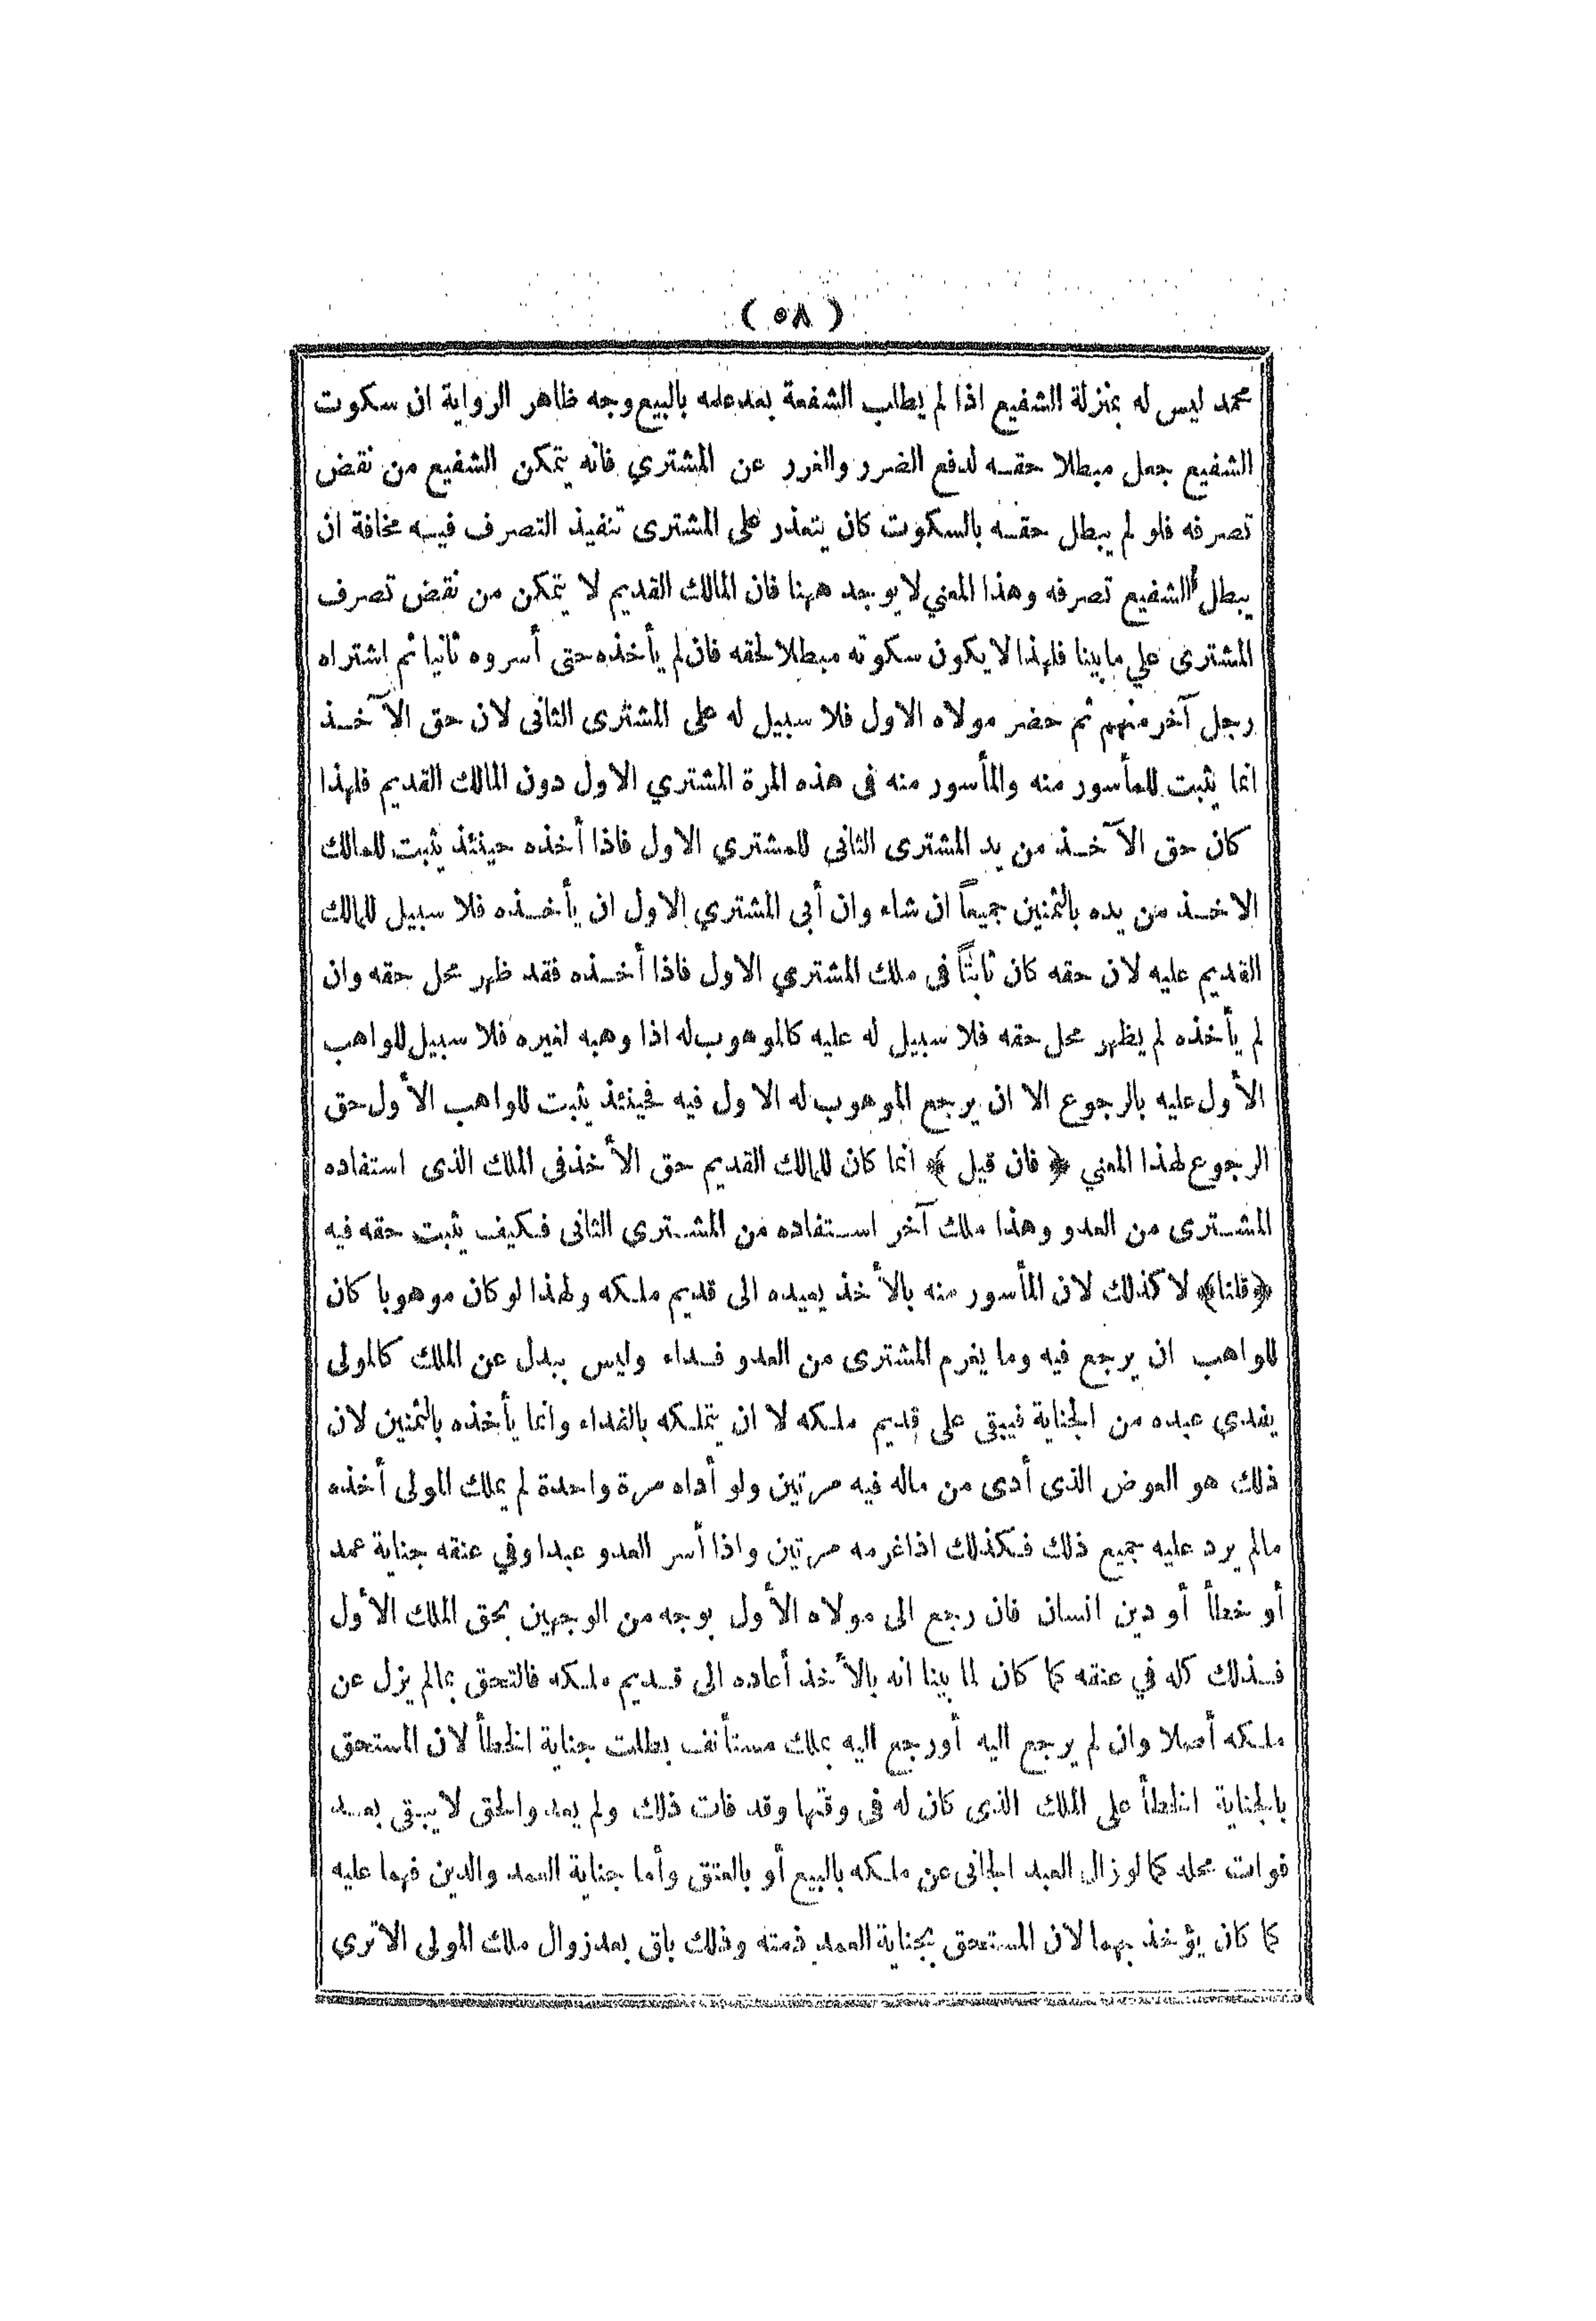 ( ٥٨ )
محمد ليس له بمنزلة الشفيع اذا لم يطلب الشفعة بعدعلمه بالبيع وجه ظاهر الرواية ان سكوت
الشفيع جعل مبطلا حقه لدفع الضرر والغرر عن المشتري فانه يتمكن الشفيع من نقض
تصرفه فلو لم يبطل حقه بالسكوت كان يتعذر على المشترى تنفيذ التصرف فيه مخافة ان
يبطل الشفيع تصرفه وهذا المعني لا يوجد ههنا فان المالك القديم لا يتمكن من نقض تصرف
المشترى علي ما بينا فلهذا لا يكون سكوته مبطلا لحقه فان لم يأخذه حتى أسروه ثانيا ثم اشتراه
رجل آخر منهم ثم حضر مولاه الاول فلا سبيل له على المشترى الثانى لان حق الآخذ
انما يثبت للمأسور منه والمأسور منه فى هذه المرة المشتري الاول دون المالك القديم فلهذا
كان حق الآخذ من يد المشترى الثانى للمشتري الاول فاذا أخذه حينئذ يثبت للمالك
الاخذ من يده بالثمنين جميعاً ان شاء وان أبى المشتري الاول ان يأخذه فلا سبيل للمالك
القديم عليه لان حقه كان ثابتاً فى ملك المشتري الاول فاذا أخذه فقد ظهر محل حقه وان
لم يأخذه لم يظهر محل حقه فلا سبيل له عليه كالموهوب له اذا وهبه لغيره فلا سبيل للواهب
الأول عليه بالرجوع الا ان يرجع الموهوب له الاول فيه فحينئذ يثبت للواهب الأول حق
الرجوع لهذا المعني ﴿ فان قيل ﴾ انما كان للمالك القديم حق الأخذ فى الملك الذى استفاده
المشترى من العدو وهذا ملك آخر استفاده من المشتري الثانى فكيف يثبت حقه فيه
﴿قلنا﴾ لا كذلك لان المأسور منه بالأخذ يعيده الى قديم ملكه ولهذا لو كان موهوبا كان
للواهب ان يرجع فيه وما يغرم المشترى من العدو فداء وليس ببدل عن الملك كالمولى
يفدي عبده من الجناية فيبقى على قديم ملكه لا ان يتملكه بالفداء وانما يأخذه بالثمنين لان
ذلك هو العوض الذى أدى من ماله فيه مرتين ولو أداه مرة واحدة لم يملك المولى أخذه
مالم يرد عليه جميع ذلك فكذلك اذا غرمه مرتين واذا أسر العدو عبدا وفي عنقه جناية عمد
أو خطأ أو دين انسان فان رجع الى مولاه الأول بوجه من الوجهين بحق الملك الأول
فذلك كله في عنقه كما كان لما بينا انه بالأخذ أعاده الى قديم ملكه فالتحق بمالم يزل عن
ملكه أصلا وان لم يرجع اليه أو رجع اليه بملك مستأنف بطلت جناية الخطأ لان المستحق
بالجناية الخطأ على الملك الذى كان له فى وقتها وقد فات ذلك ولم يعد والحق لا يبقى بعد
فوات محله كما لو زال العبد الجانى عن ملكه بالبيع أو بالعتق وأما جناية العمد والدين فهما عليه
كما كان يؤخذ بهما لان المستحق بجناية العمد ذمته وذلك باق بعد زوال ملك المولى الاترى